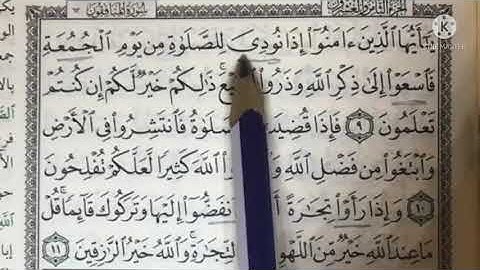 الجزء الثامن والعشرون سورة المنافقون
يَٰٓأَيُّهَا ٱلَّذِينَ ءَامَنُوٓا۟ إِذَا نُودِىَ لِلصَّلَوٰةِ مِن يَوْمِ ٱلْجُمُعَةِ
فَٱسْعَوْا۟ إِلَىٰ ذِكْرِ ٱللَّهِ وَذَرُوا۟ ذَٰلِكُمْ خَيْرٌ لَّكُمْ إِن كُنتُمْ
تَعْلَمُونَ ٩ فَإِذَا قُضِيَتِ فَٱنتَشِرُوا۟ فِى ٱلْأَرْضِ
وَٱبْتَغُوا۟ مِن فَضْلِ ٱللَّهِ ٱللَّهَ كَثِيرًا لَّعَلَّكُمْ تُفْلِحُونَ
١٠ وَإِذَا رَأَوْا۟ تِجَٰرَةً نفَضُّوٓا۟ إِلَيْهَا وَتَرَكُوكَ قَآئِمًا قُلْ
مَا عِندَ ٱللَّهِ خَيْرٌ مِّنَ ٱللَّهْوِ لتِّجَٰرَةِ وَٱللَّهُ خَيْرُ ٱلرَّٰزِقِينَ ١١